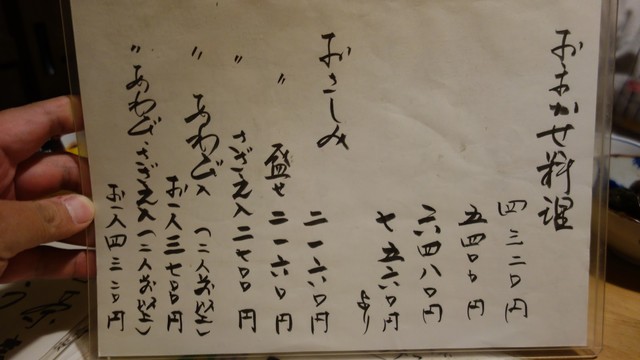 おまかせ料理
四三二〇円
五四〇〇円
六四八〇円
七五六〇円
より
おさしみ
二一六〇円
〃 盛せ 二一六〇円
〃 さざえ入 二七〇〇円
〃 あわび入 (二人前以上)
お一人三七〇〇円
〃 あわび、さざえ入(二人前以上)
お一人四三二〇円